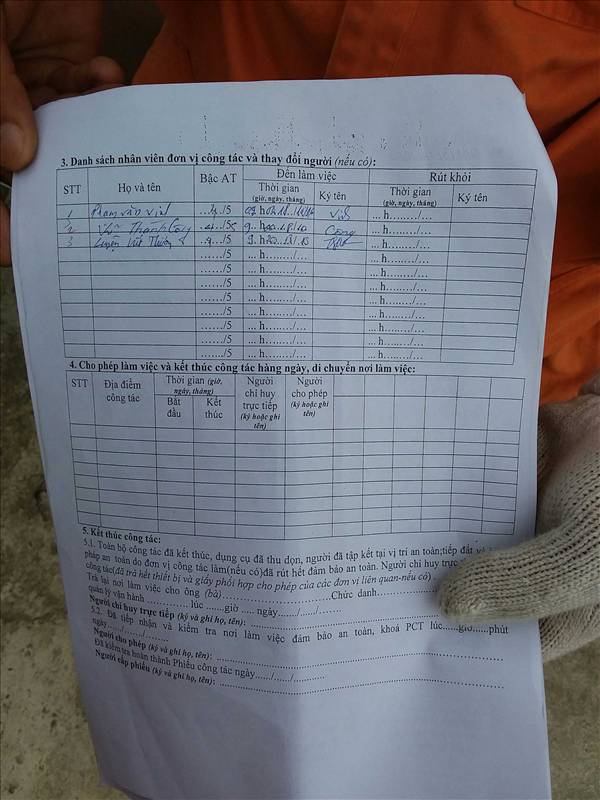 3. Danh sách nhân viên đơn vị công tác và thay đổi người (nếu có):
STT Họ và tên Bậc AT Đến làm việc Rút khỏi
Thời gian (giờ, ngày, tháng) Ký tên Thời gian (giờ, ngày, tháng) Ký tên
1 Phạm văn Vinh /5 Vinh ... h......./...
2 Thành Công /5 Công ... h......./...
3 /5 ... h......./...
......./5 ... h......./... ... h......./...
......./5 ... h......./... ... h......./...
......./5 ... h......./... ... h......./...
......./5 ... h......./... ... h......./...
......./5 ... h......./... ... h......./...
......./5 ... h......./... ... h......./...
......./5 ... h......./... ... h......./...
......./5 ... h......./... ... h......./...
4. Cho phép làm việc và kết thúc công tác hàng ngày, di chuyển nơi làm việc:
STT Địa điểm công tác Thời gian (giờ, ngày, tháng) Người chỉ huy trực tiếp (ký hoặc ghi tên) Người cho phép (ký hoặc ghi tên)
Bắt đầu Kết thúc
5. Kết thúc công tác:
5.1. Toàn bộ công tác đã kết thúc, dụng cụ đã thu dọn, người đã tập kết tại vị trí an toàn;tiếp đất và
pháp an toàn do đơn vị công tác làm(nếu có)đã rút hết đảm bảo an toàn. Người chỉ huy trực
công tác(đã trả hết thiết bị và giấy phối hợp cho phép của các đơn vị liên quan-nếu có)
Trả lại nơi làm việc cho ông (bà)..............................Chức danh..................
quản lý vận hành .............. lúc .......giờ ..... ngày......./....../.......
Người chỉ huy trực tiếp (ký và ghi họ, tên): ..............................
5.2. Đã tiếp nhận và kiểm tra nơi làm việc đảm bảo an toàn, khoá PCT lúc......giờ......phút
ngày....../....../.......
Người cho phép (ký và ghi họ, tên): ..............................
Đã kiểm tra hoàn thành Phiếu công tác ngày....../....../..........
Người cấp phiếu (ký và ghi họ, tên): ..............................